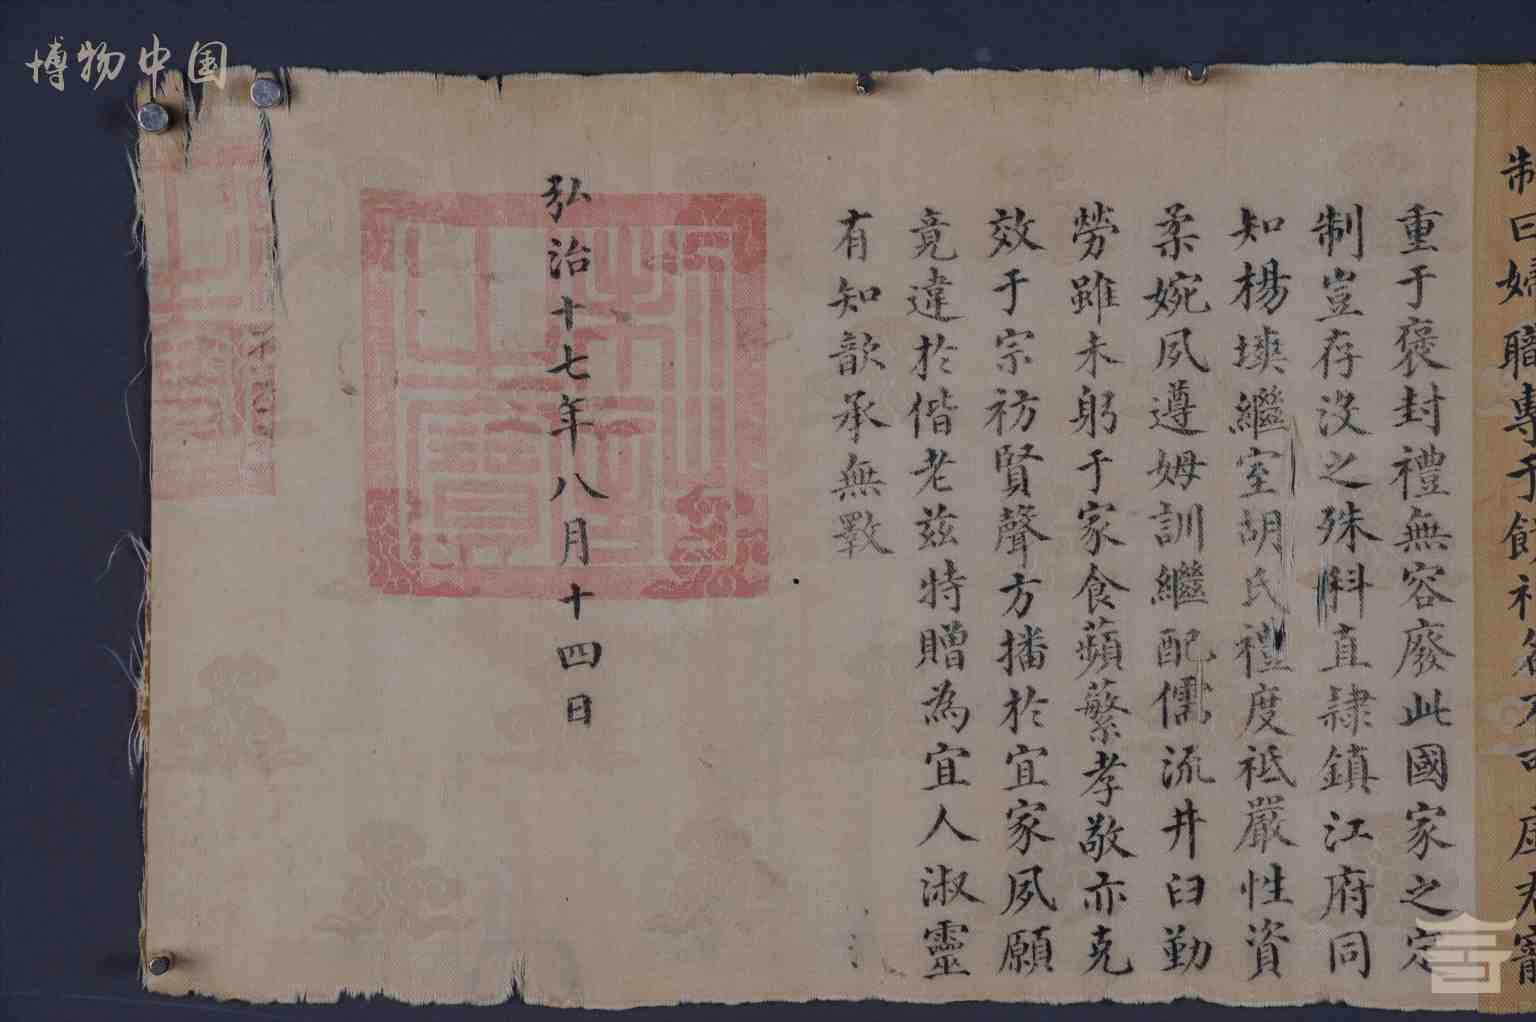 博物中国
制曰婦職專于饋祀
重于褒封禮無容廢此國家之定
制豈存沒之殊科直隷鎮江府同
知楊塽繼室胡氏禮度祗嚴性資
柔婉夙遵姆訓繼配儒流井臼勤
勞雖未躬于家食蘋蘩孝敬亦克
效于宗祊賢聲方播於宜家夙願
竟違於偕老兹特贈為宜人淑靈
有知歆承無斁
弘治十七年八月十四日
制誥之寶